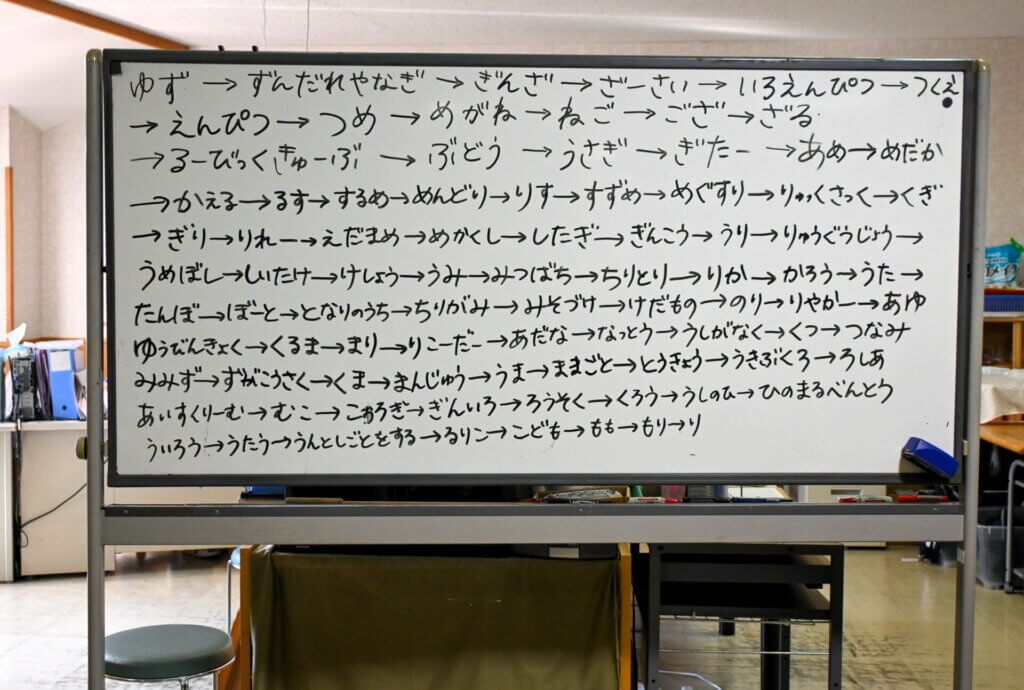 ゆず→ずんだれやなぎ→ぎんざ→ざーさい→いろえんぴつ→つくえ
→えんぴつ→つめ→めがね→ねご→ござ→ざる
→るーびっくきゅーぶ→ぶどう→うさぎ→ぎたー→あめ→めだか
→かえる→るす→するめ→めんどり→りす→すずめ→めぐすり→りゅっくさっく→くぎ
→ぎり→りれー→えだまめ→めかくし→したぎ→ぎんこう→うり→りゅうぐうじょう→
うめぼし→しいたけ→けしょう→うみ→みつばち→ちりとり→りか→かろう→うた→
たんぼ→ぼーと→となりのうち→ちりがみ→みそづけ→けだもの→のり→りやかー→あゆ
ゆうびんきょく→くるま→まり→りこーだー→あだな→なっとう→うしがなく→くつ→つなみ
みみず→ずがこうさく→くま→まんじゅう→うま→ままごと→とうきょう→うきぶくろ→ろしあ
あいすくりーむ→むこ→こおろぎ→ぎんいろ→ろうそく→くろう→うしのひ→ひのまるべんとう
ういろう→うたう→うんとしごとをする→るりこ→こども→もも→もり→り